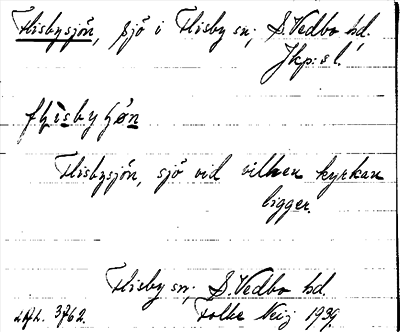 Flisbysjön, sjö i Flisby sn; S. Vedbo hd,
Jkp:s l.
Flisbysjön, sjö vid vilken kyrkan
ligger.
Flisby sn; S. Vedbo hd.
3762. Folke Neij 1939.